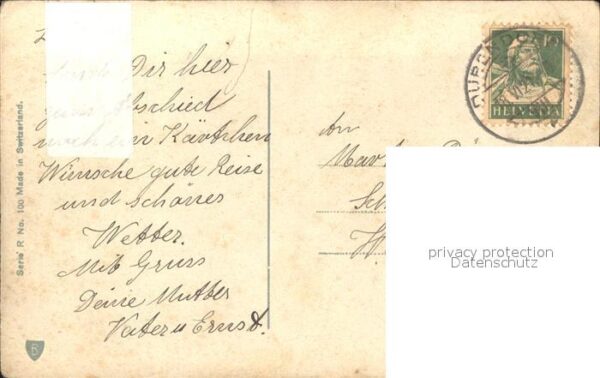 Dir hier
Abschied
noch ein Kärtchen
Wünsche gute Reise
und schönes
Wetter.
Mit Gruss
Deine Mutter
Vater u Ernst.
An
Serie R No. 100 Made in Switzerland.
10
HELVETIA
privacy protection
Datenschutz